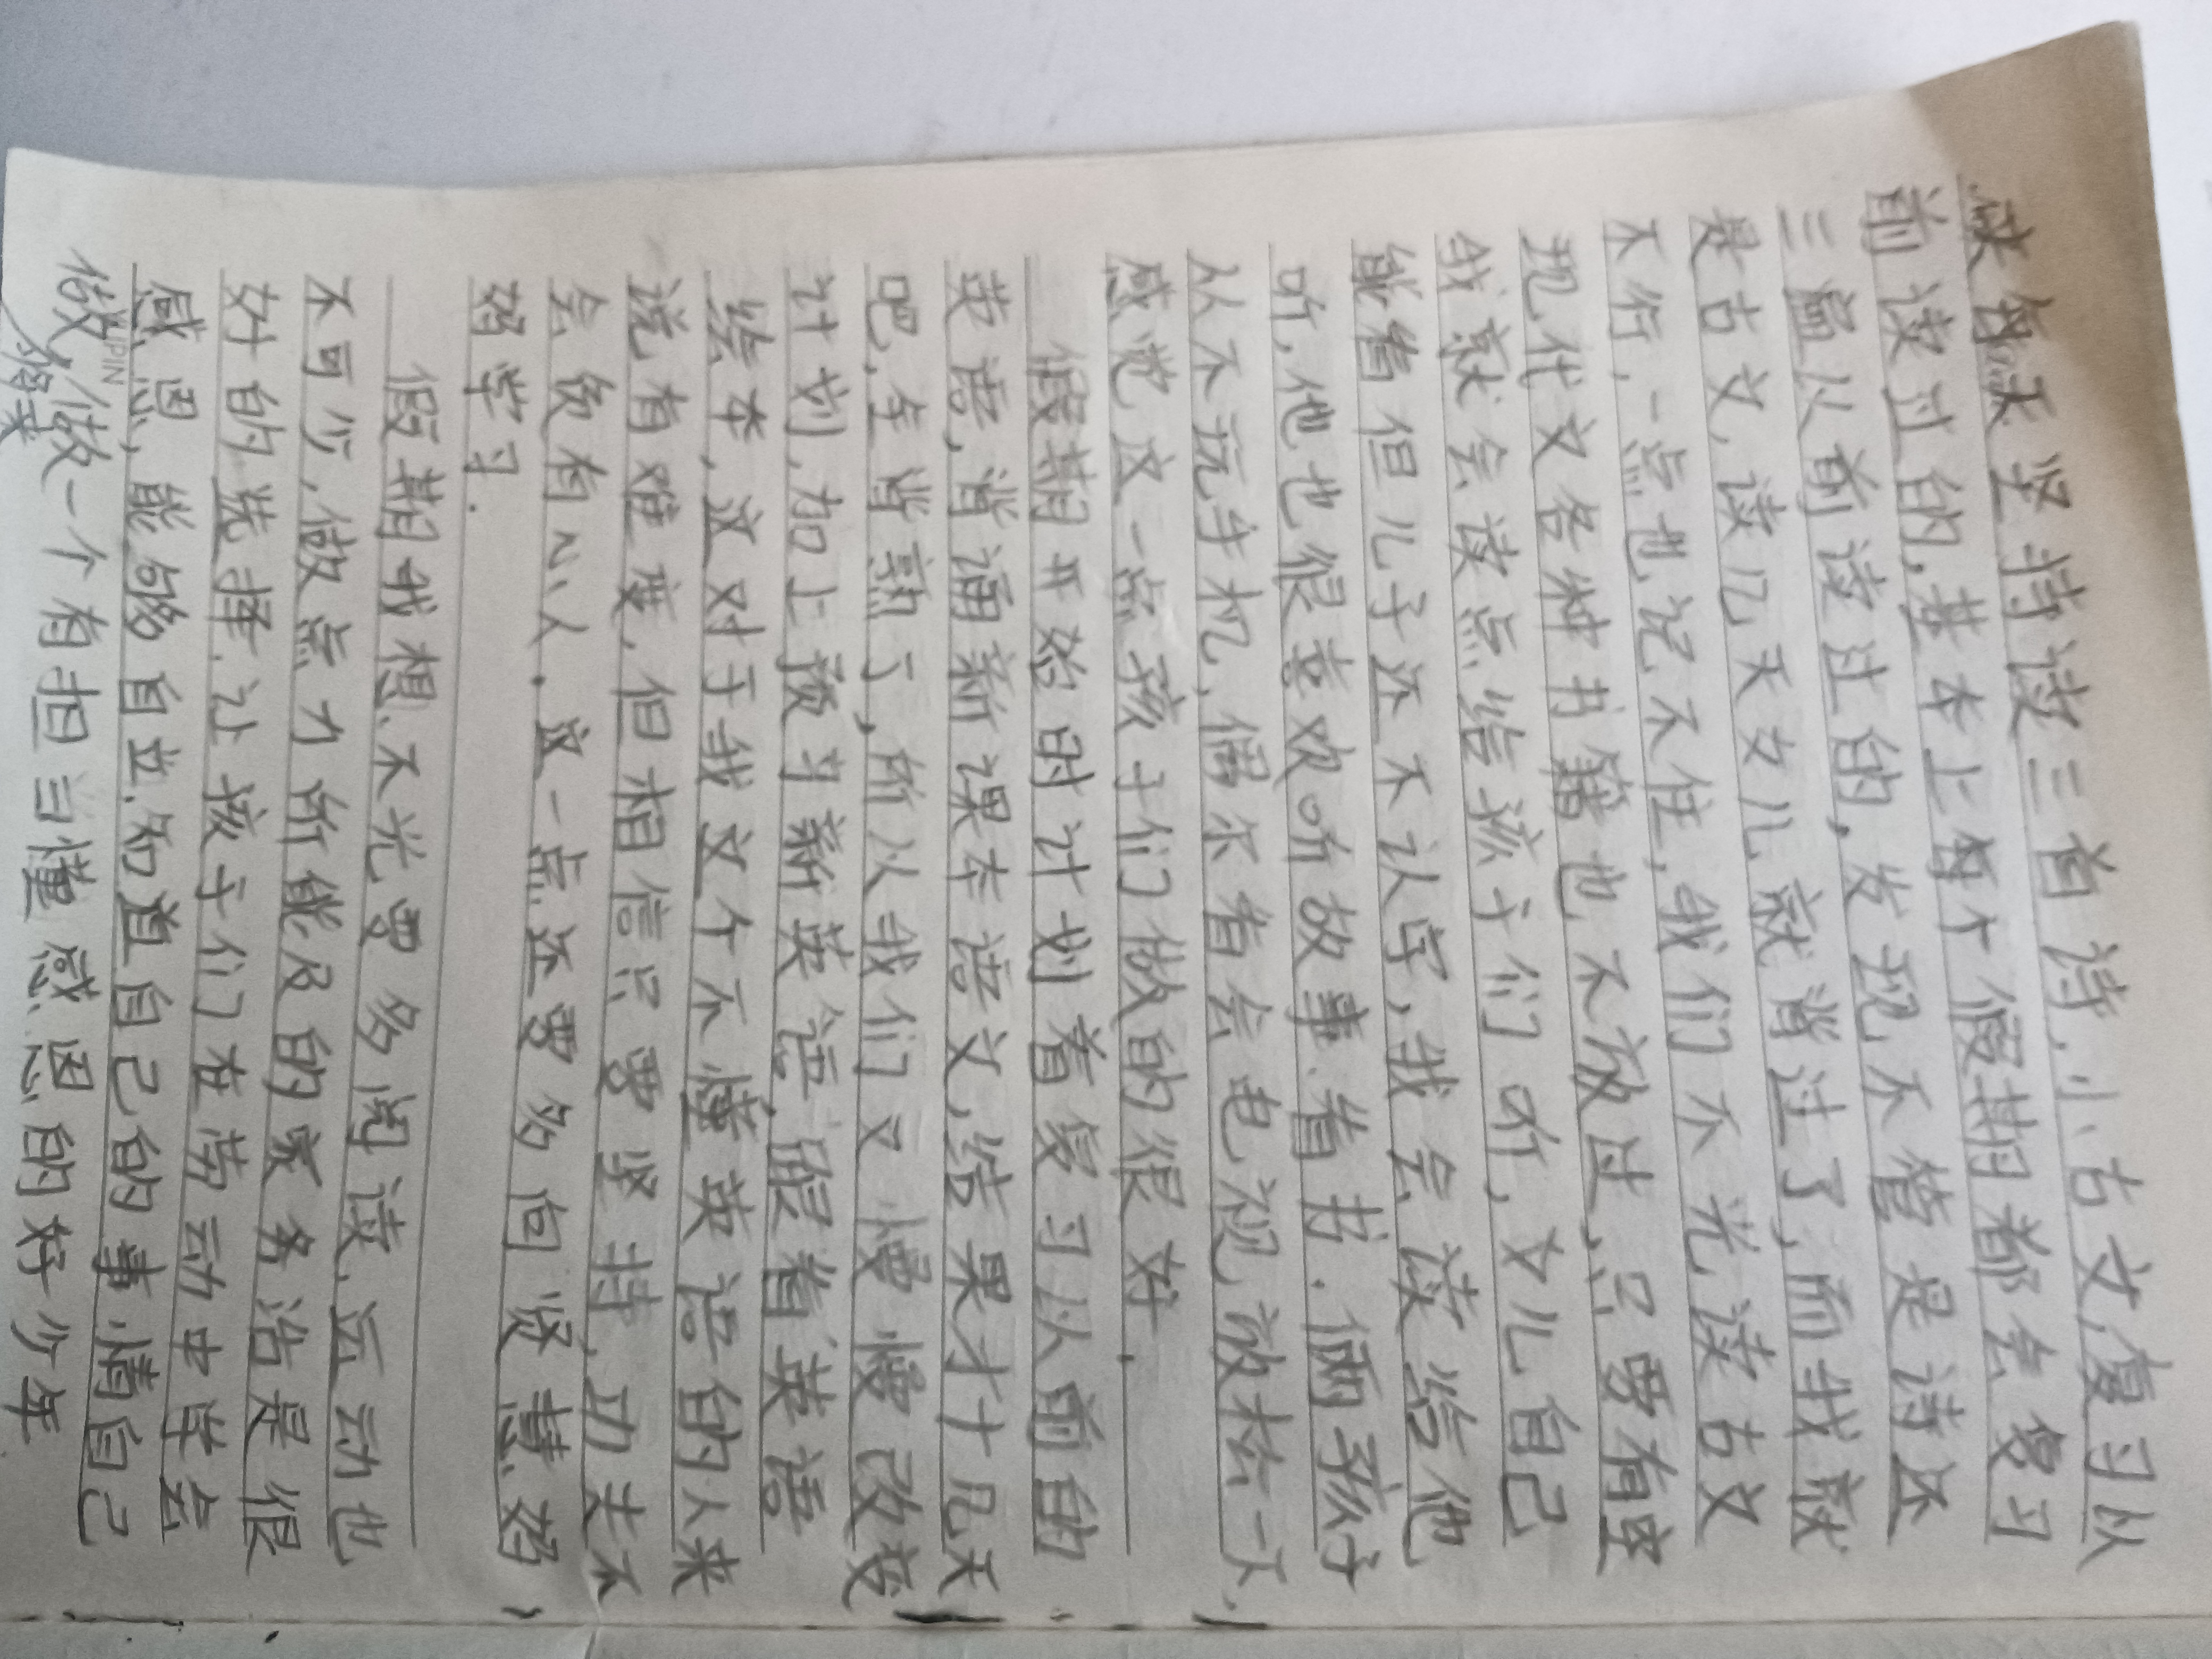 缺每天坚持读三首诗.小古文复习以
前读过的,基本上每个假期都会复习
三遍从前读过的,发现不管是诗还
是古文,读几天女儿就背过了,而我就
不行,一点也记不住,我们不光读古文
现代文各种书籍也不放过,只要有空
我就会读点给孩子们听,女儿自己
能看但儿子还不认字,我会读给他
听,他也很喜欢听故事.看书.俩孩子
从不玩手机,偶尔看会电视放松一下,
感觉这一点孩子们做的很好.
假期开始时计划着复习从前的
英语,背诵新课本语文,结果才十几天
吧,全背熟了,所以我们又慢慢改变
计划,加上预习新英语,跟着英语
绘本,这对于我这个不懂英语的人来
说有难度,但相信只要坚持,功夫不
会负有心人,这一点还要多向贤慧好
好学习.
假期我想,不光要多阅读,运动也
不可少,做点力所能及的家务活是很
好的选择,让孩子们在劳动中学会
感恩,能够自立.知道自己的事情自己
做,做一个有担当懂感恩的好少年